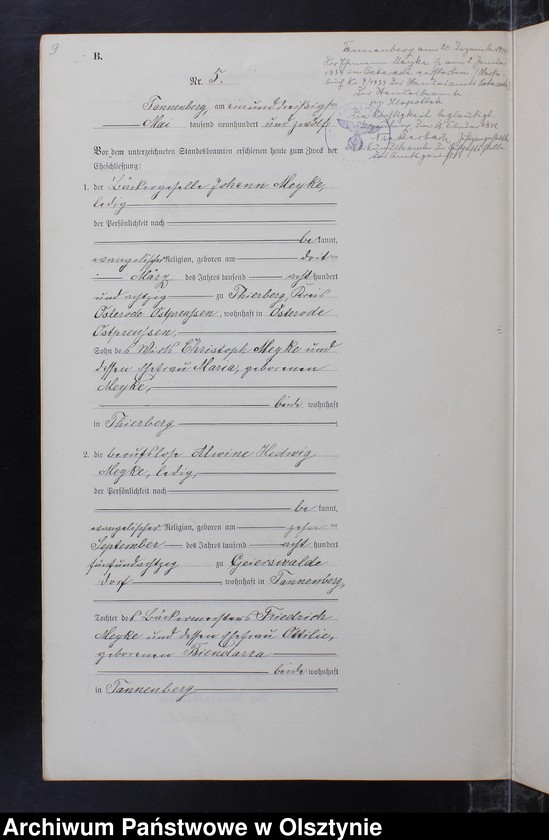 9
B.
Tannenberg am 20. Dezember 19
Der Ehemann Meyke ist am 2. Januar
1939 in Osterode verstorben
Nr. 7/1939 des Standesamts Osterode
Der Standesbeamte
Klopottek
Die Richtigkeit beglaubigt
Nr. 5.
Tannenberg, am einunddreißigsten
Mai tausend neunhundert und zwölf
Vor dem unterzeichneten Standesbeamten erschienen heute zum Zweck der
Eheschließung:
1. der Bäckergeselle Johann Meyke,
ledig
der Persönlichkeit nach
be kannt,
evangelischer Religion, geboren am
März des Jahres tausend acht hundert
und achtzig zu Thierberg, Kreis
Osterode Ostpreussen, wohnhaft in Osterode
Ostpreussen,
Sohn des Wirts Christoph Meyke und
dessen Ehefrau Maria, geborenen
Meyke,
beide wohnhaft
in Thierberg
2. die berufslose Alwine Hedwig
Meyke, ledig,
der Persönlichkeit nach
be kannt,
evangelischer Religion, geboren am zehn ten
September des Jahres tausend acht hundert
fünfundachtzig zu Geierswalde
Dorf, wohnhaft in Tannenberg,
Tochter des Bäckermeisters Friedrich
Meyke und dessen Ehefrau Ottilie,
geborenen Biendarra
beide wohnhaft
in Tannenberg
Archiwum Państwowe w Olsztynie